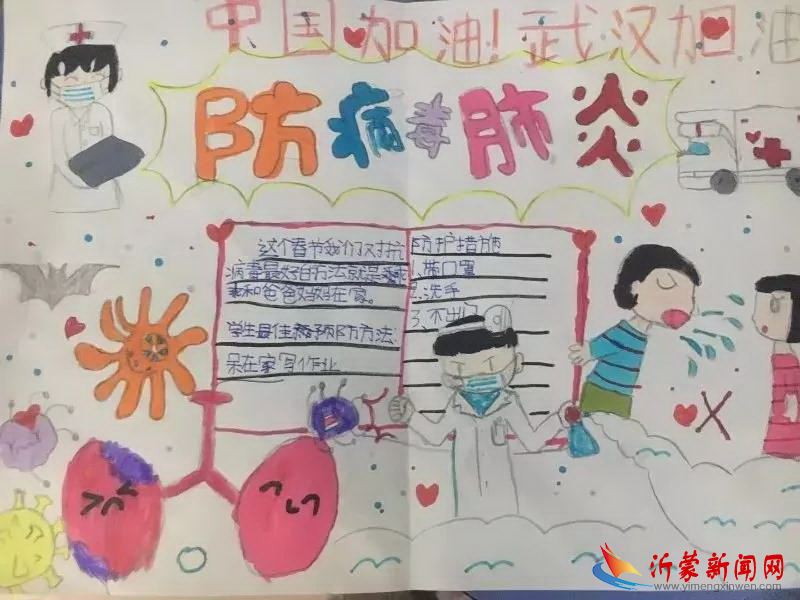 中国加油!武汉加油
防病毒肺炎
这个春节我们对抗
病毒最好的方法就是乖乖
和爸爸妈妈在家。
学生最佳预防方法:
呆在家写作业
防护措施
1.带口罩
2.洗手
3.不出门
沂蒙新闻网
www.yimengxinwen.com